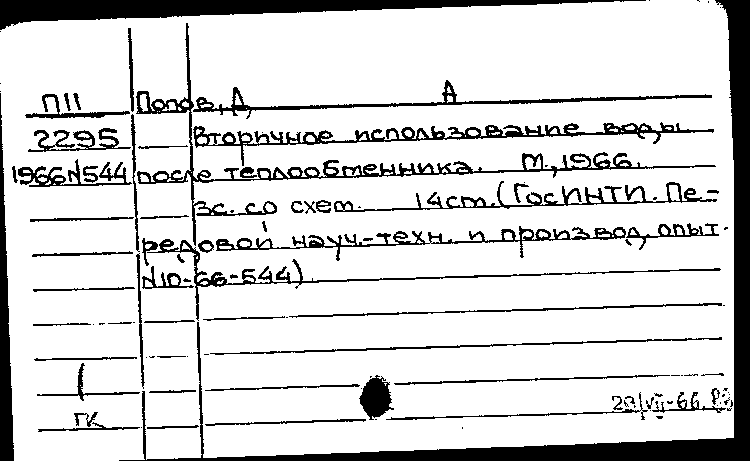 П11 Попов, Д. А
2295 Вторичное использование воды
1966N544 после теплообменника. М., 1966.
3с. со схем. 14см. (ГосИНТИ. Пе-
редовой науч.-техн. и производ. опыт.
N10-66-544)
1
ГК
29/VII-66.